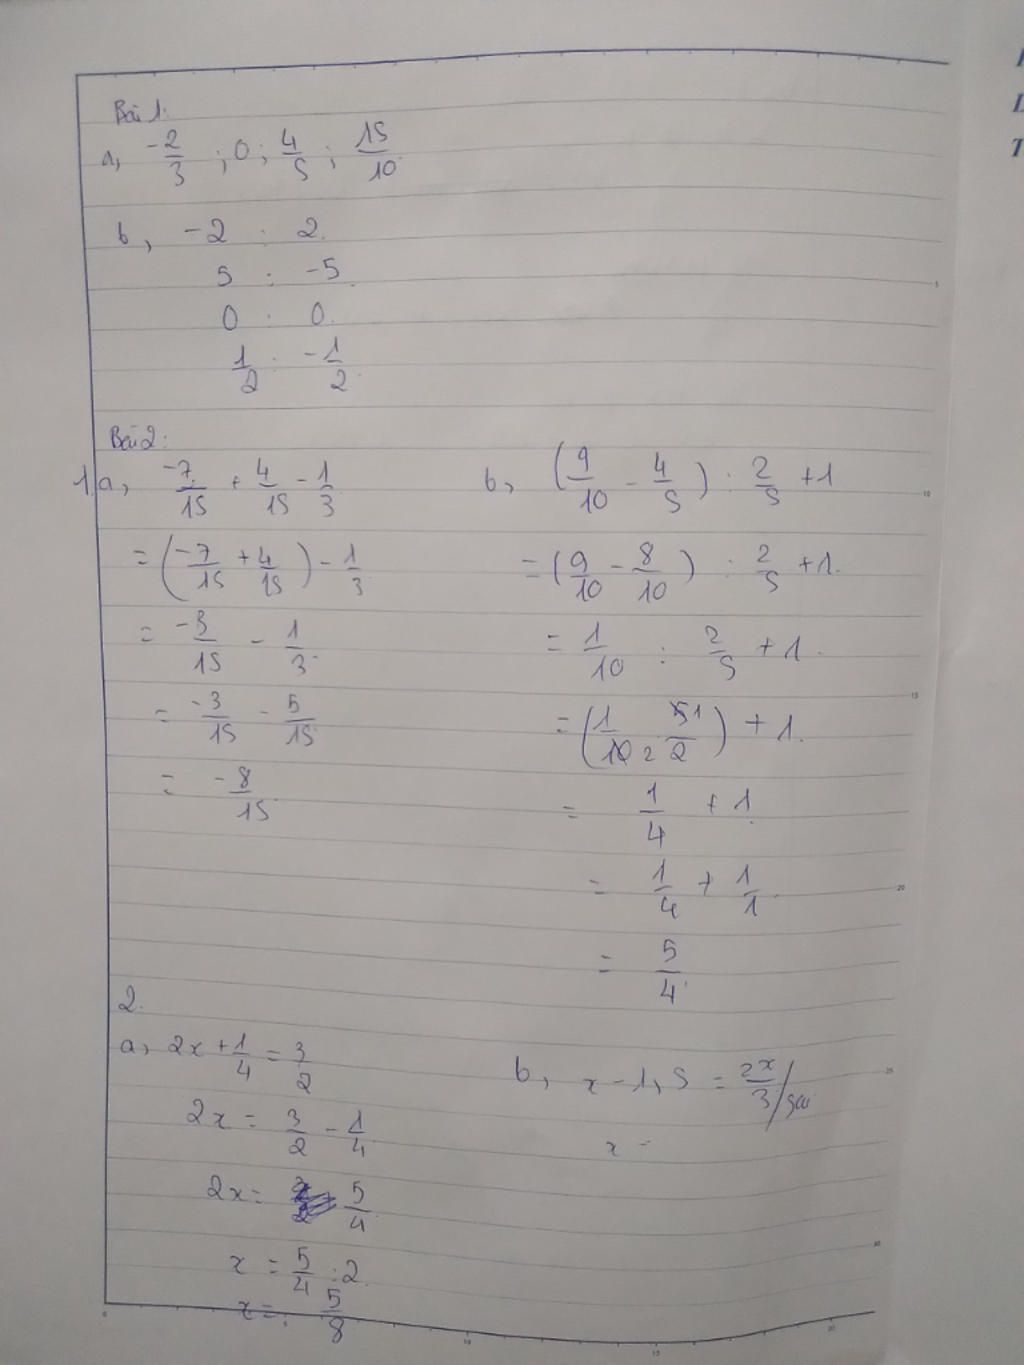 Bài 1:
a, -2/3 ; 0 ; 4/5 ; 15/10.
b, -2 : 2.
5 : -5.
0 : 0.
1/2 : -1/2.
Bài 2:
1.a, -7/15 + 4/15 - 1/3
= (-7/15 + 4/15) - 1/3.
= -3/15 - 1/3.
= -3/15 - 5/15
= -8/15.
b, (9/10 - 4/5) : 2/5 + 1
= (9/10 - 8/10) : 2/5 + 1.
= 1/10 : 2/5 + 1.
= (1/10 2 . 5 1/2) + 1.
= 1/4 + 1.
= 1/4 + 1/1.
= 5/4.
2.
a, 2x + 1/4 = 3/2
2x = 3/2 - 1/4
2x = 5/4.
x = 5/4 : 2.
x = 5/8
b, x - 1,5 = 2x/3 / sai
x =
5
10
15
20
25
30
0
10
15
20